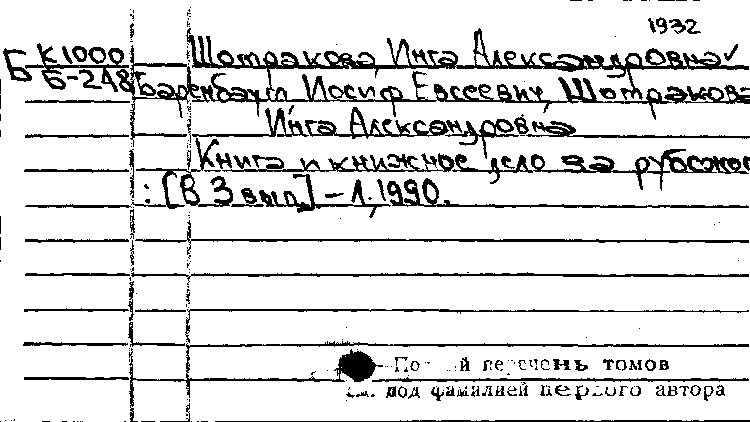 1932
Б К1000 Шотракова, Инга Александровна
Б-248 Баренбаум Иосиф Евсеевич, Шотракова
Инга Александровна
Книга и книжное дело за рубежом
: [В 3 вып.] – Л., 1990.
Полный перечень томов
см. под фамилией первого автора